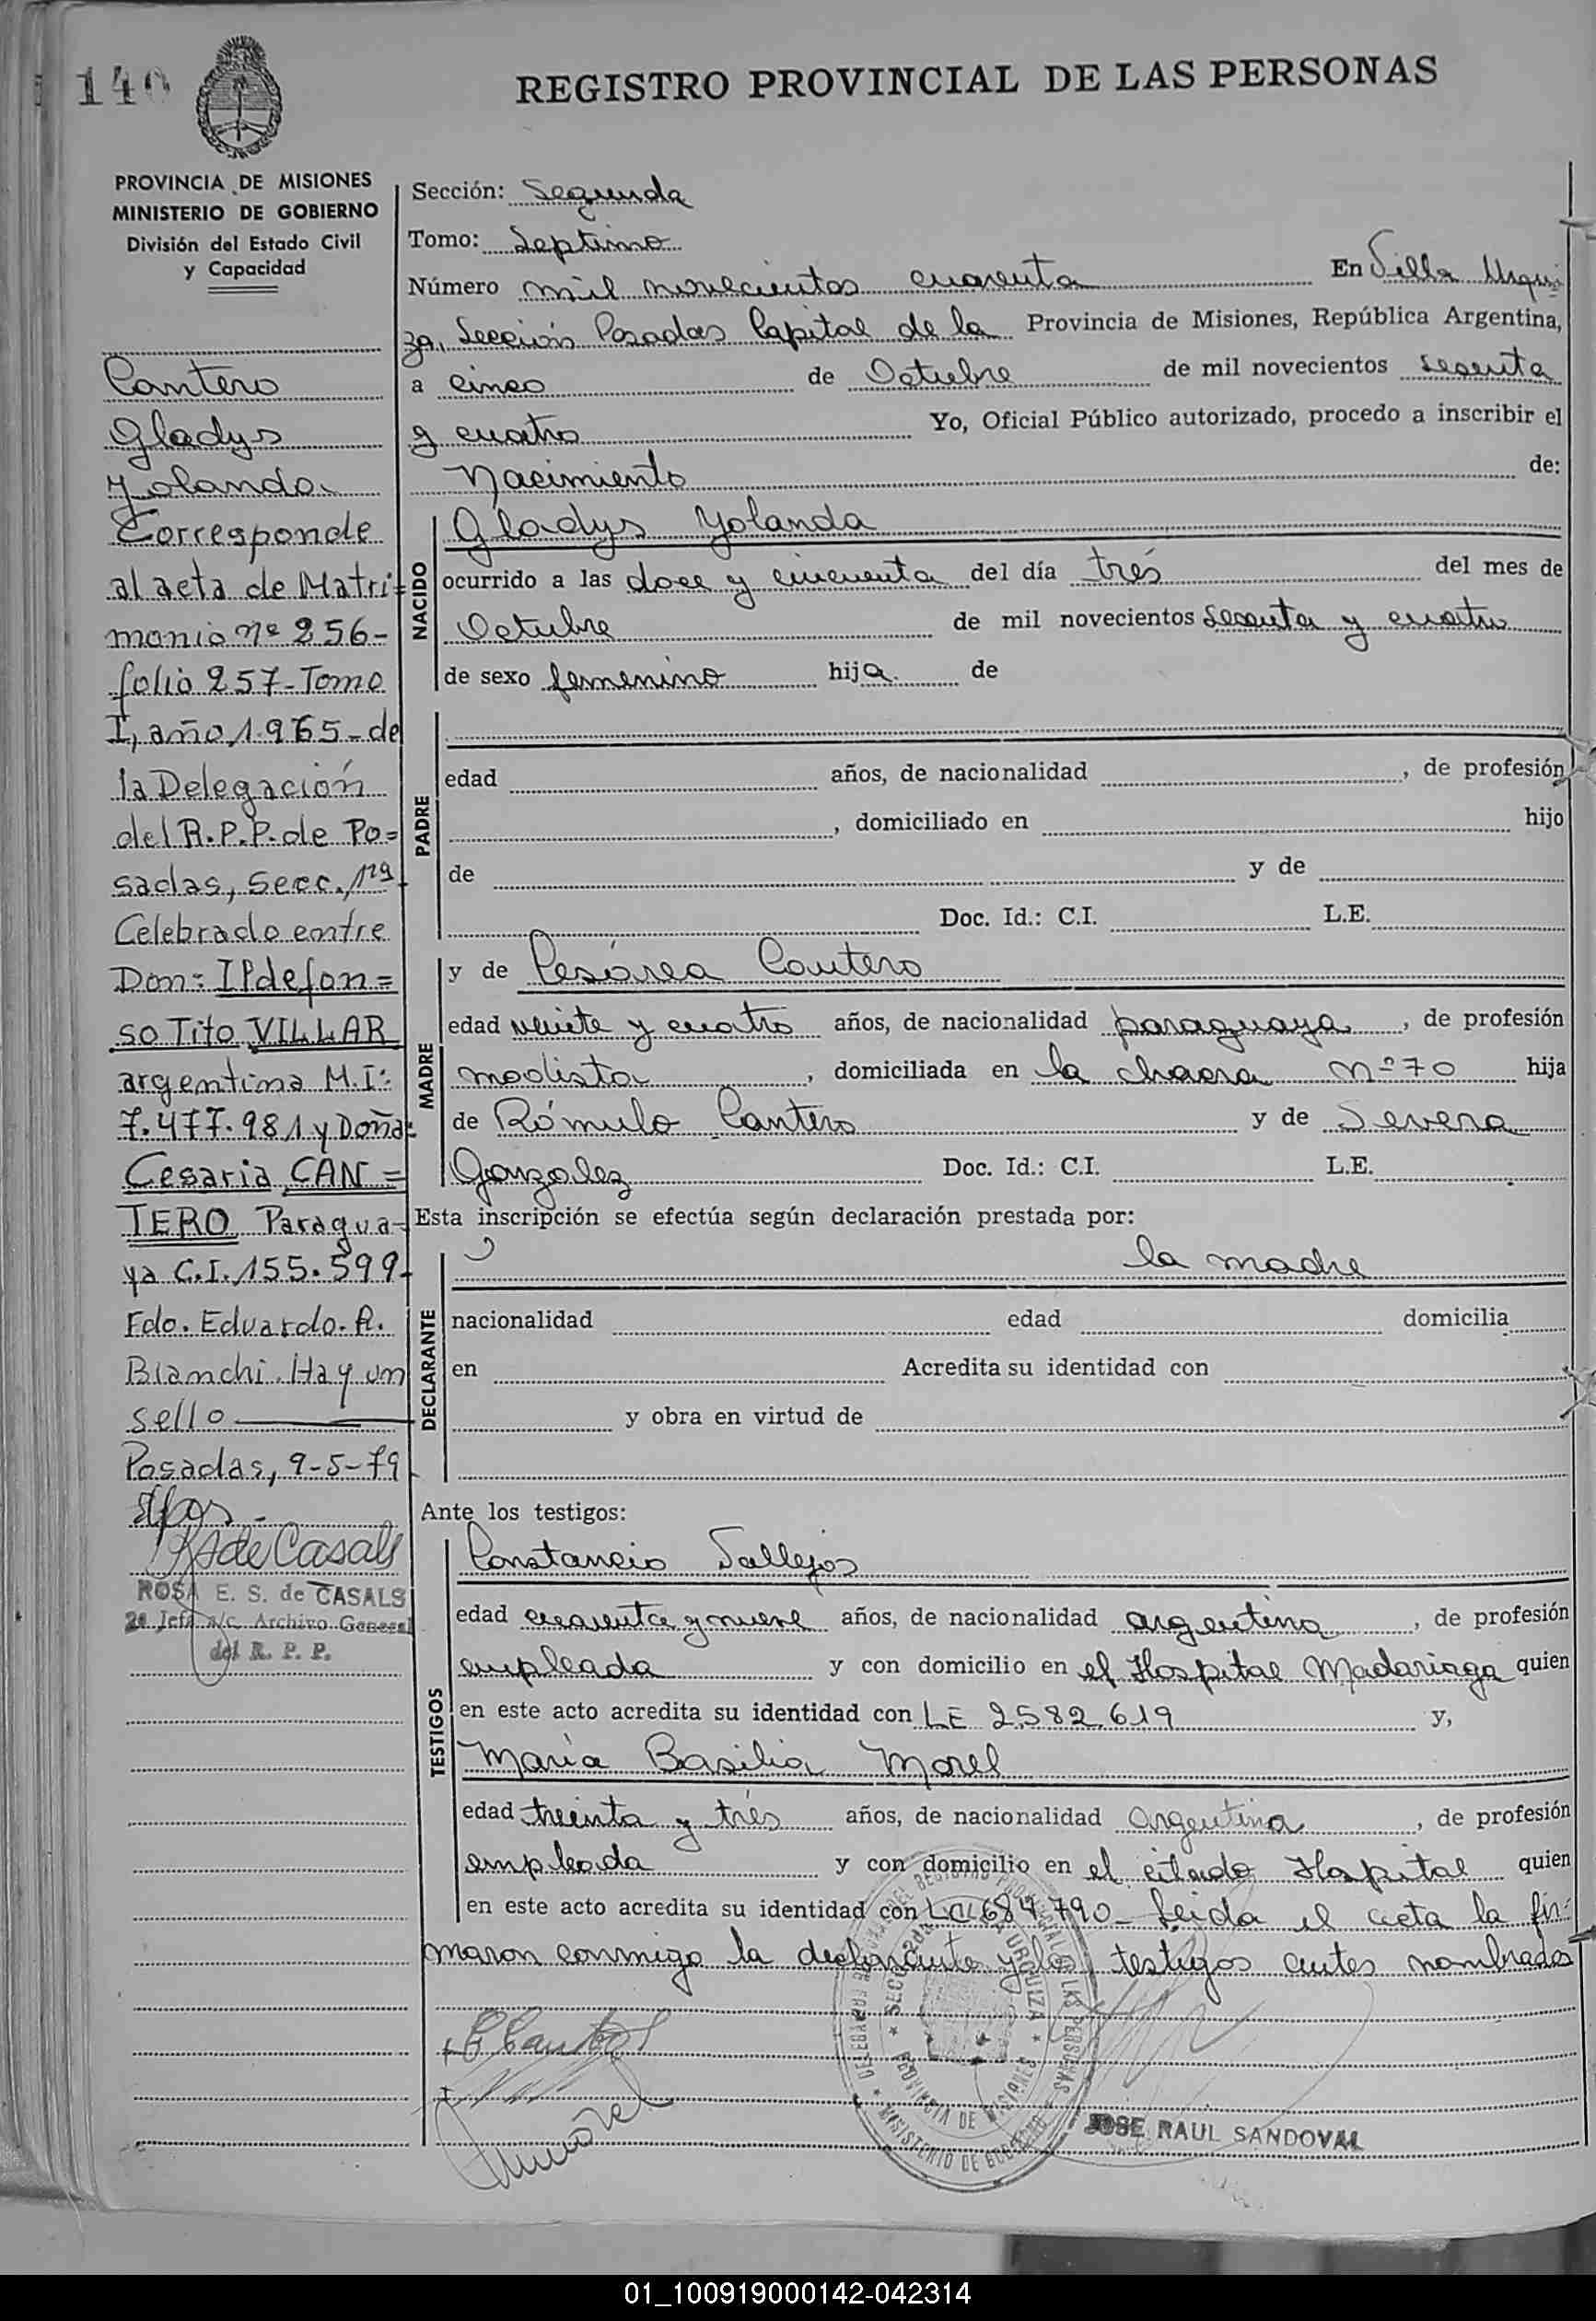 140
REGISTRO PROVINCIAL DE LAS PERSONAS
PROVINCIA DE MISIONES
MINISTERIO DE GOBIERNO
División del Estado Civil
y Capacidad
Cantero
Gladys
Yolanda
Corresponde
al acta de Matri=
monio Nº 256-
folio 257-Tomo
I, año 1.965-de
la Delegación
del R.P.P. de Po=
sadas, Secc. 1ra
Celebrado entre
Don: Ildefon=
so Tito VILLAR
argentina M.I:
7.477.981 y Doña:
Cesaria CAN=
TERO Paragua-
ya C.I. 155.599-
Fdo. Eduardo. A.
Bianchi. Hay un
sello
Posadas, 9-5-79
de Casals
ROSA E. S. de CASALS
2a Jefa a/c. Archivo General
del R. P. P.
Sección: Segunda
Tomo: Septimo
Número mil novecientos cuarenta En Villa Urqui
za, Sección Posadas Capital de la Provincia de Misiones, República Argentina,
a cinco de Octubre de mil novecientos sesenta
y cuatro Yo, Oficial Público autorizado, procedo a inscribir el
Nacimiento de:
NACIDO
Gladys Yolanda
ocurrido a las doce y cincuenta del día trés del mes de
Octubre de mil novecientos sesenta y cuatro
de sexo femenino hija de
PADRE
edad años, de nacionalidad , de profesión
, domiciliado en hijo
de y de
Doc. Id.: C.I. L.E.
MADRE
y de Cesárea Cantero
edad veinte y cuatro años, de nacionalidad paraguaya , de profesión
modista , domiciliada en la chacra Nº 70 hija
de Rómulo Cantero y de Severa
Gonzalez Doc. Id.: C.I. L.E.
Esta inscripción se efectúa según declaración prestada por:
DECLARANTE
la madre
nacionalidad edad domicilia
en Acredita su identidad con
y obra en virtud de
Ante los testigos:
TESTIGOS
Constancio Vallejos
edad cuarenta y nueve años, de nacionalidad argentina , de profesión
empleada y con domicilio en el Hospital Madariaga quien
en este acto acredita su identidad con LE 2.582.619 y,
María Basilia Morel
edad treinta y trés años, de nacionalidad argentina , de profesión
empleada y con domicilio en el citado Hospital quien
en este acto acredita su identidad con 684.790- Leida el acta la fir-
maron conmigo la declarante y los testigos antes nombrados
JOSE RAUL SANDOVAL
01_100919000142-042314